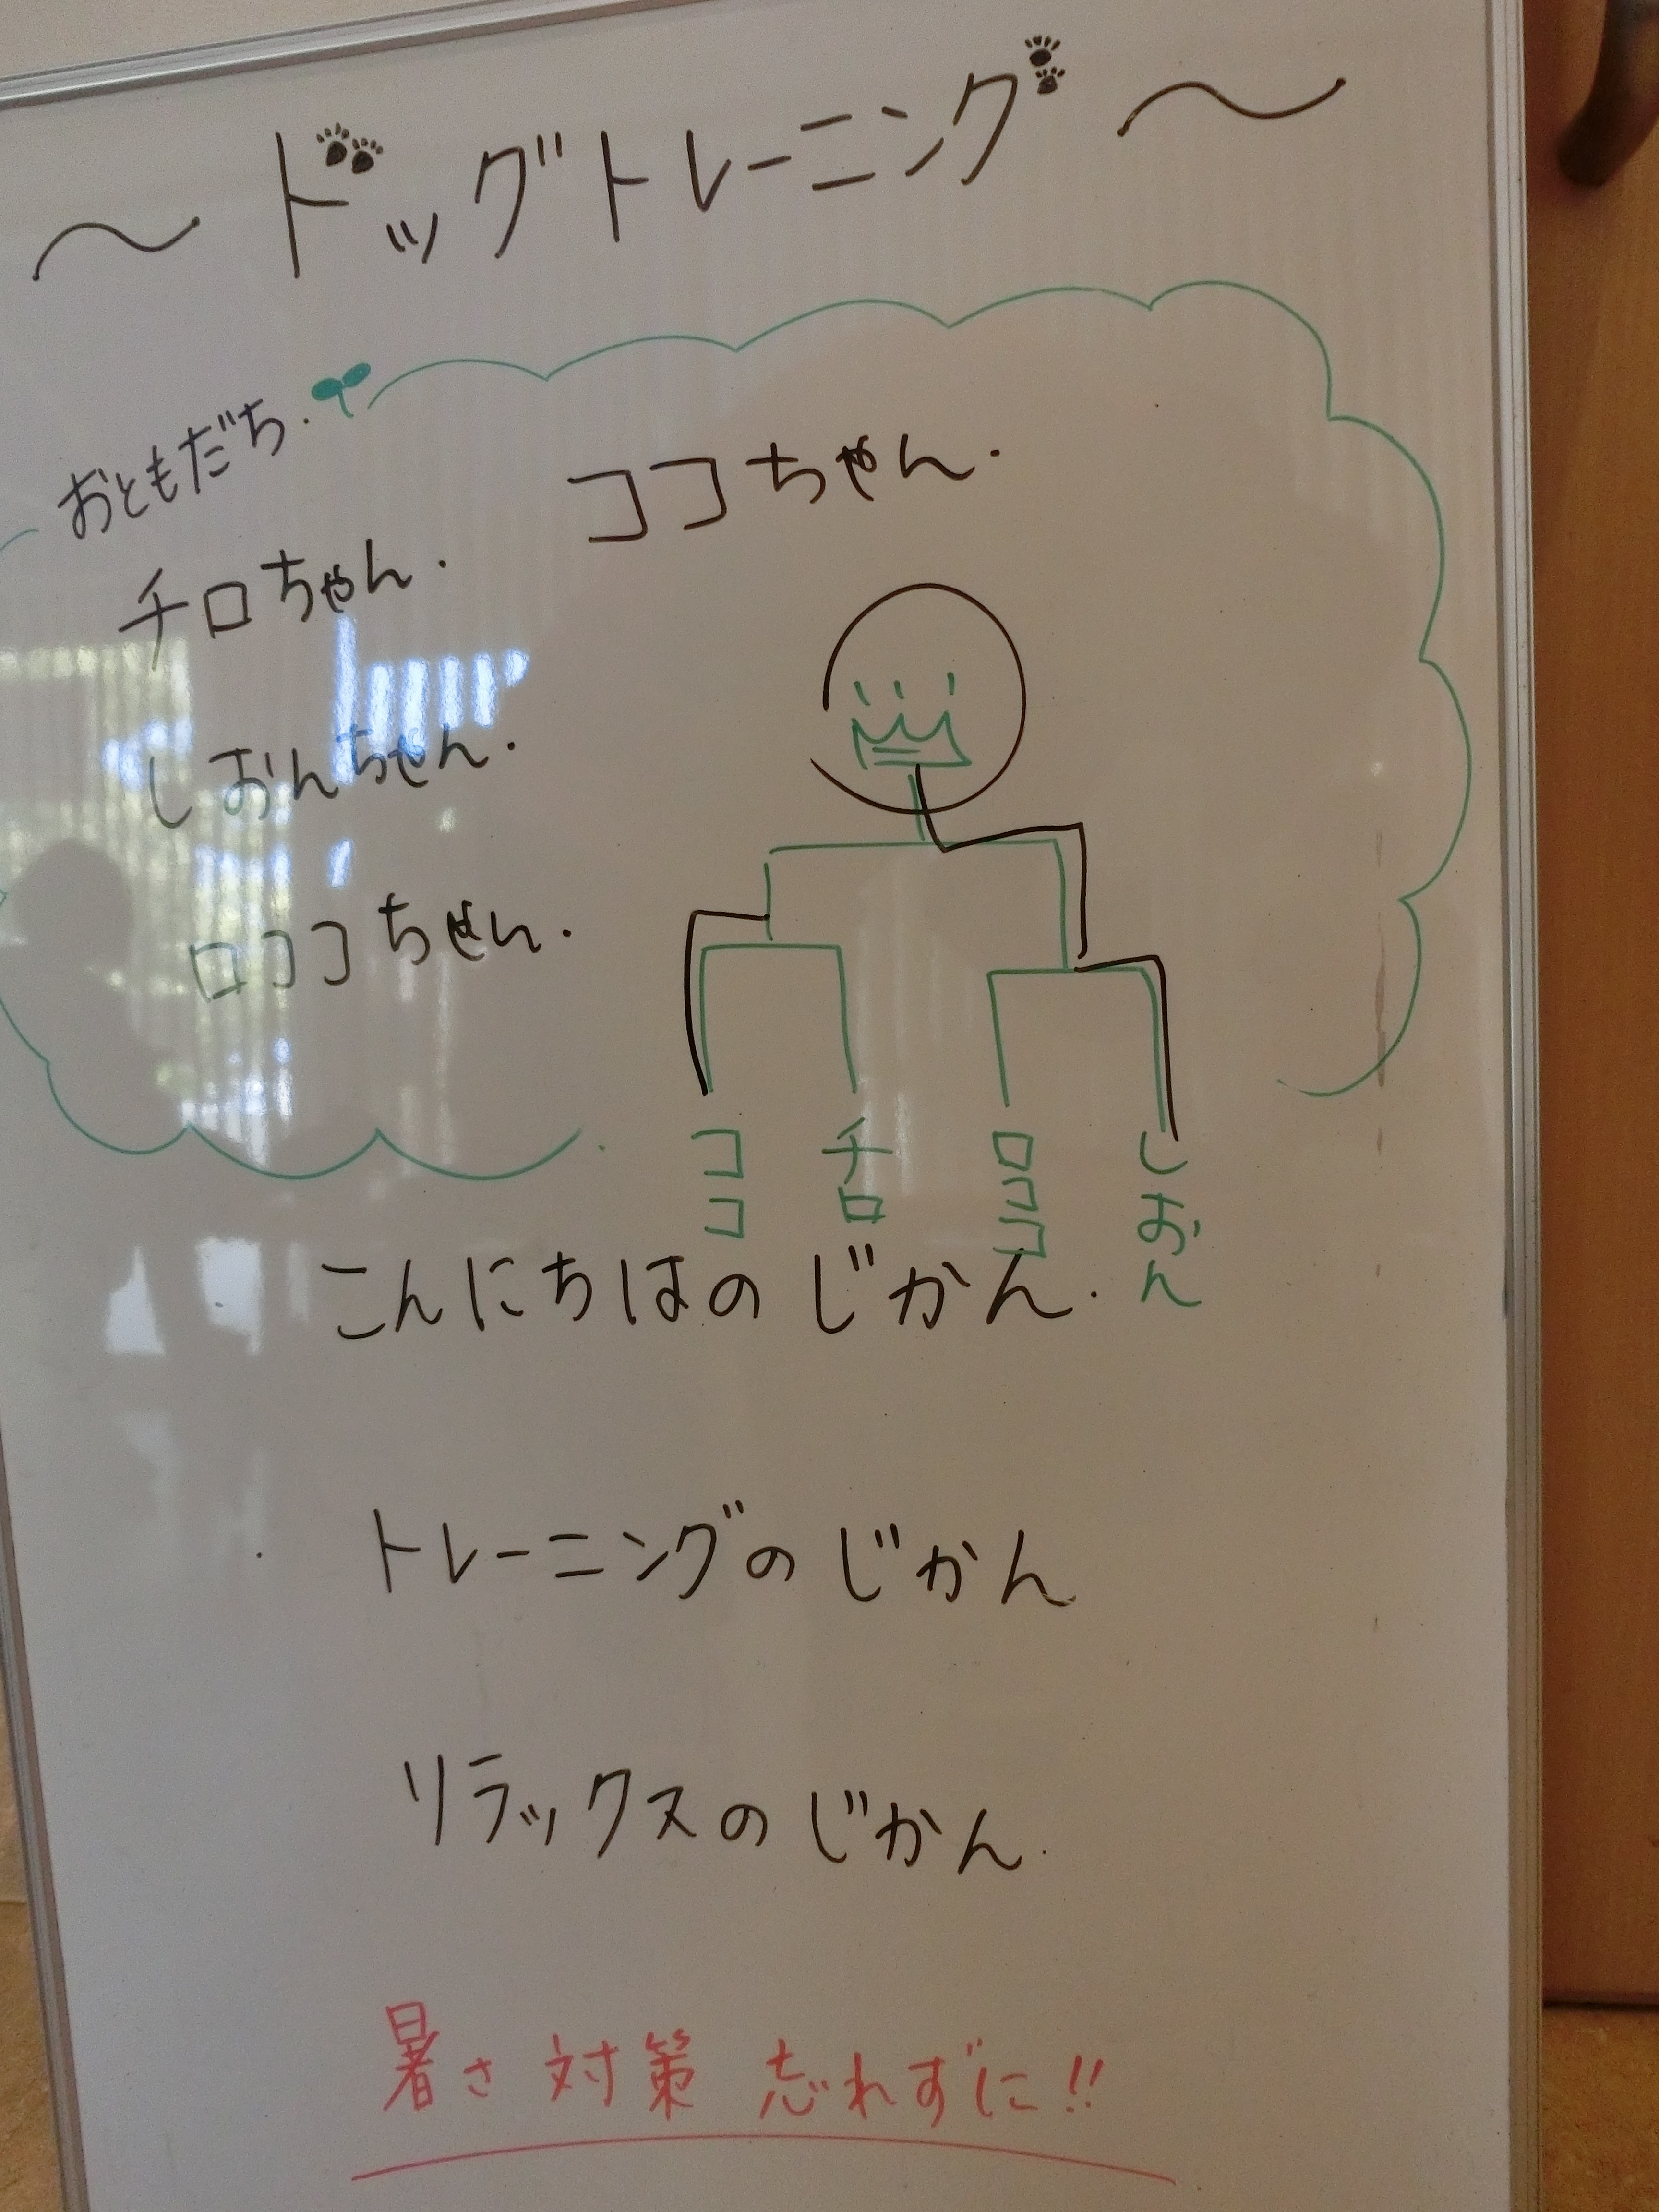 ～ドッグトレーニング～
おともだち.
ココちゃん.
チロちゃん.
しおんちゃん.
ロココちゃん.
ココ
チロ
ロココ
しおん
こんにちはのじかん.
トレーニングのじかん
リラックスのじかん.
暑さ対策 忘れずに!!